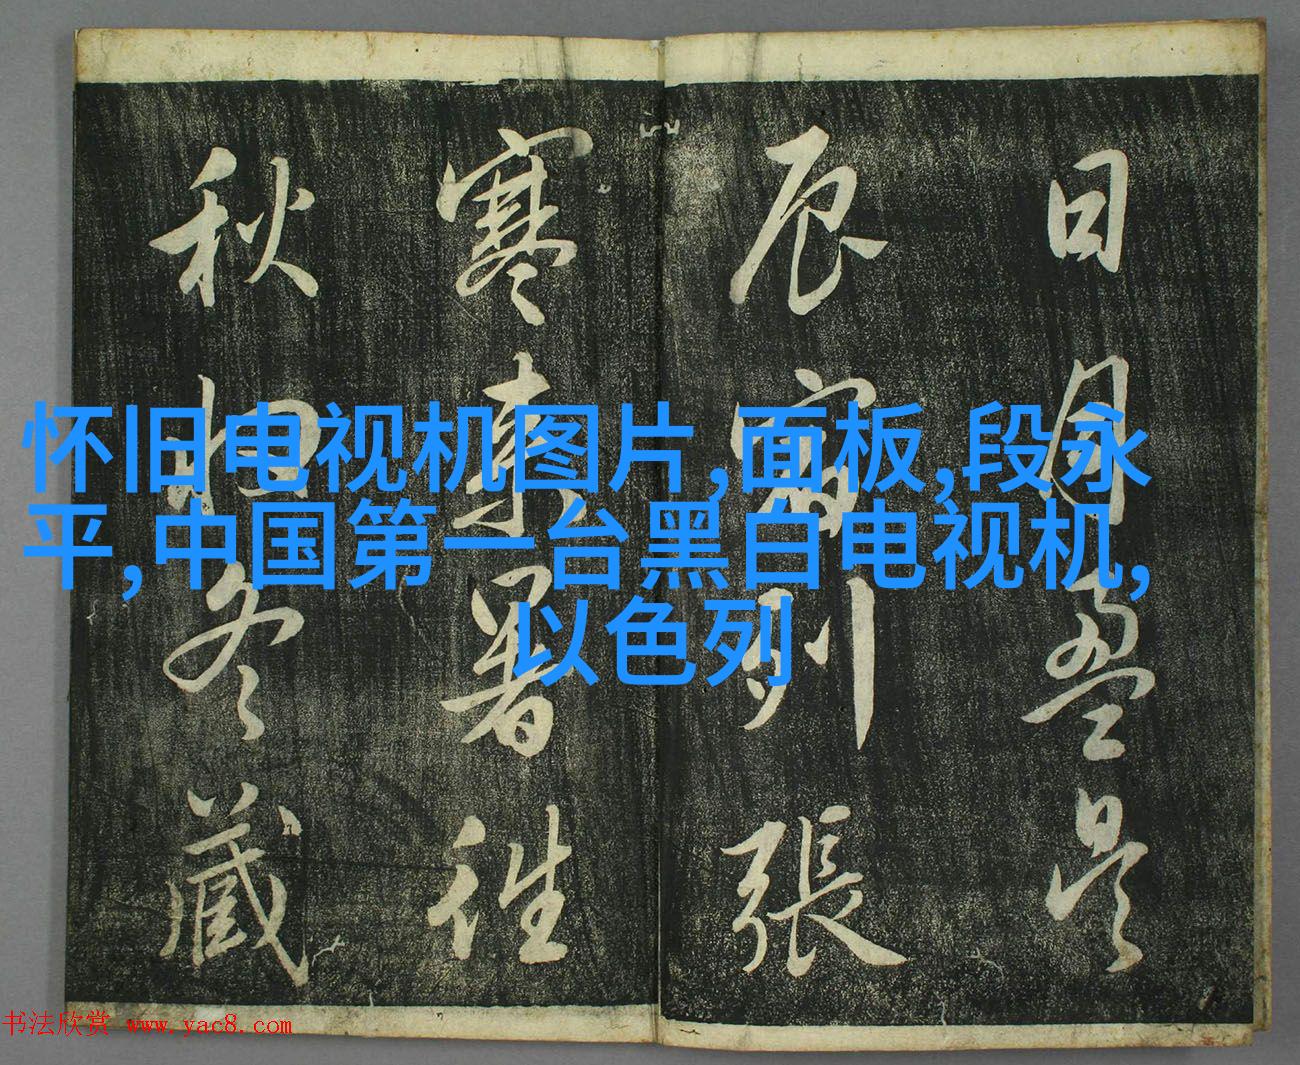 怀旧电视机图片,面板,段永
平,中国第一台黑白电视机,
以色列
日月盈昃
辰宿列張
寒來暑往
秋收冬藏
书法欣赏 www.yac8.com